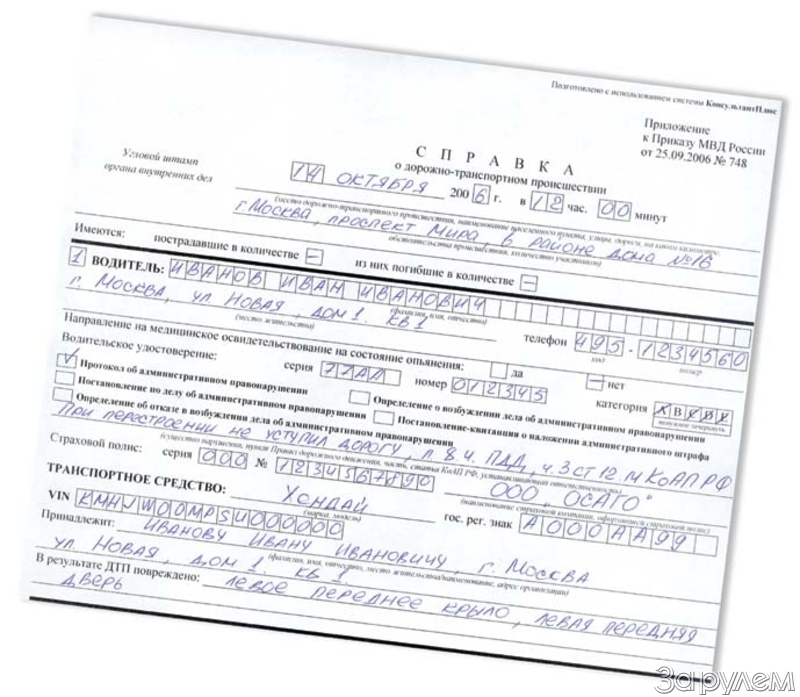 Подготовлено с использованием системы КонсультантПлюс
Приложение
к Приказу МВД России
от 25.09.2006 № 748
Угловой штамп
органа внутренних дел
СПРАВКА
о дорожно-транспортном происшествии
14 ОКТЯБРЯ 2006 г. в 12 час. 00 минут
(место дорожно-транспортного происшествия, наименование населенного пункта, улицы, дороги, на каком километре,
г. Москва, проспект Мира, в районе дома №16
обстоятельства происшествия, количество участников)
Имеются: пострадавшие в количестве — из них погибшие в количестве —
1 ВОДИТЕЛЬ: ИВАНОВ ИВАН ИВАНОВИЧ
(фамилия, имя, отчество)
г. Москва, ул Новая, дом 1. кв 1
(место жительства)
телефон 495 - 1234560
код номер
Направление на медицинское освидетельствование на состояние опьянения: да — нет
Водительское удостоверение: серия 77АА номер 012345 категория A B C D E
Протокол об административном правонарушении
Определение о возбуждении дела об административном правонарушении
Постановление по делу об административном правонарушении
Постановление-квитанция о наложении административного штрафа
Определение об отказе в возбуждении дела об административном правонарушении
При перестроении не уступил дорогу, п. 8.4. ПДД, ч. 3 ст 12.14 КоАП РФ
(существо нарушения, пункт Правил дорожного движения, часть, статья КоАП РФ, устанавливающая ответственность)
Страховой полис: серия 000 № 1234567890 ООО "ОСАГО"
(наименование страховой компании, оформившей страховой полис)
ТРАНСПОРТНОЕ СРЕДСТВО: Хендай гос. рег. знак А000АА99
(марка, модель)
VIN KMHJW00MPSU000000
Принадлежит: Иванову Ивану Ивановичу, г. Москва
(фамилия, имя, отчество, место жительства/наименование, адрес организации)
ул. Новая, дом 1 кв 1
В результате ДТП повреждено: левое переднее крыло, левая передняя
дверь
Зарулем